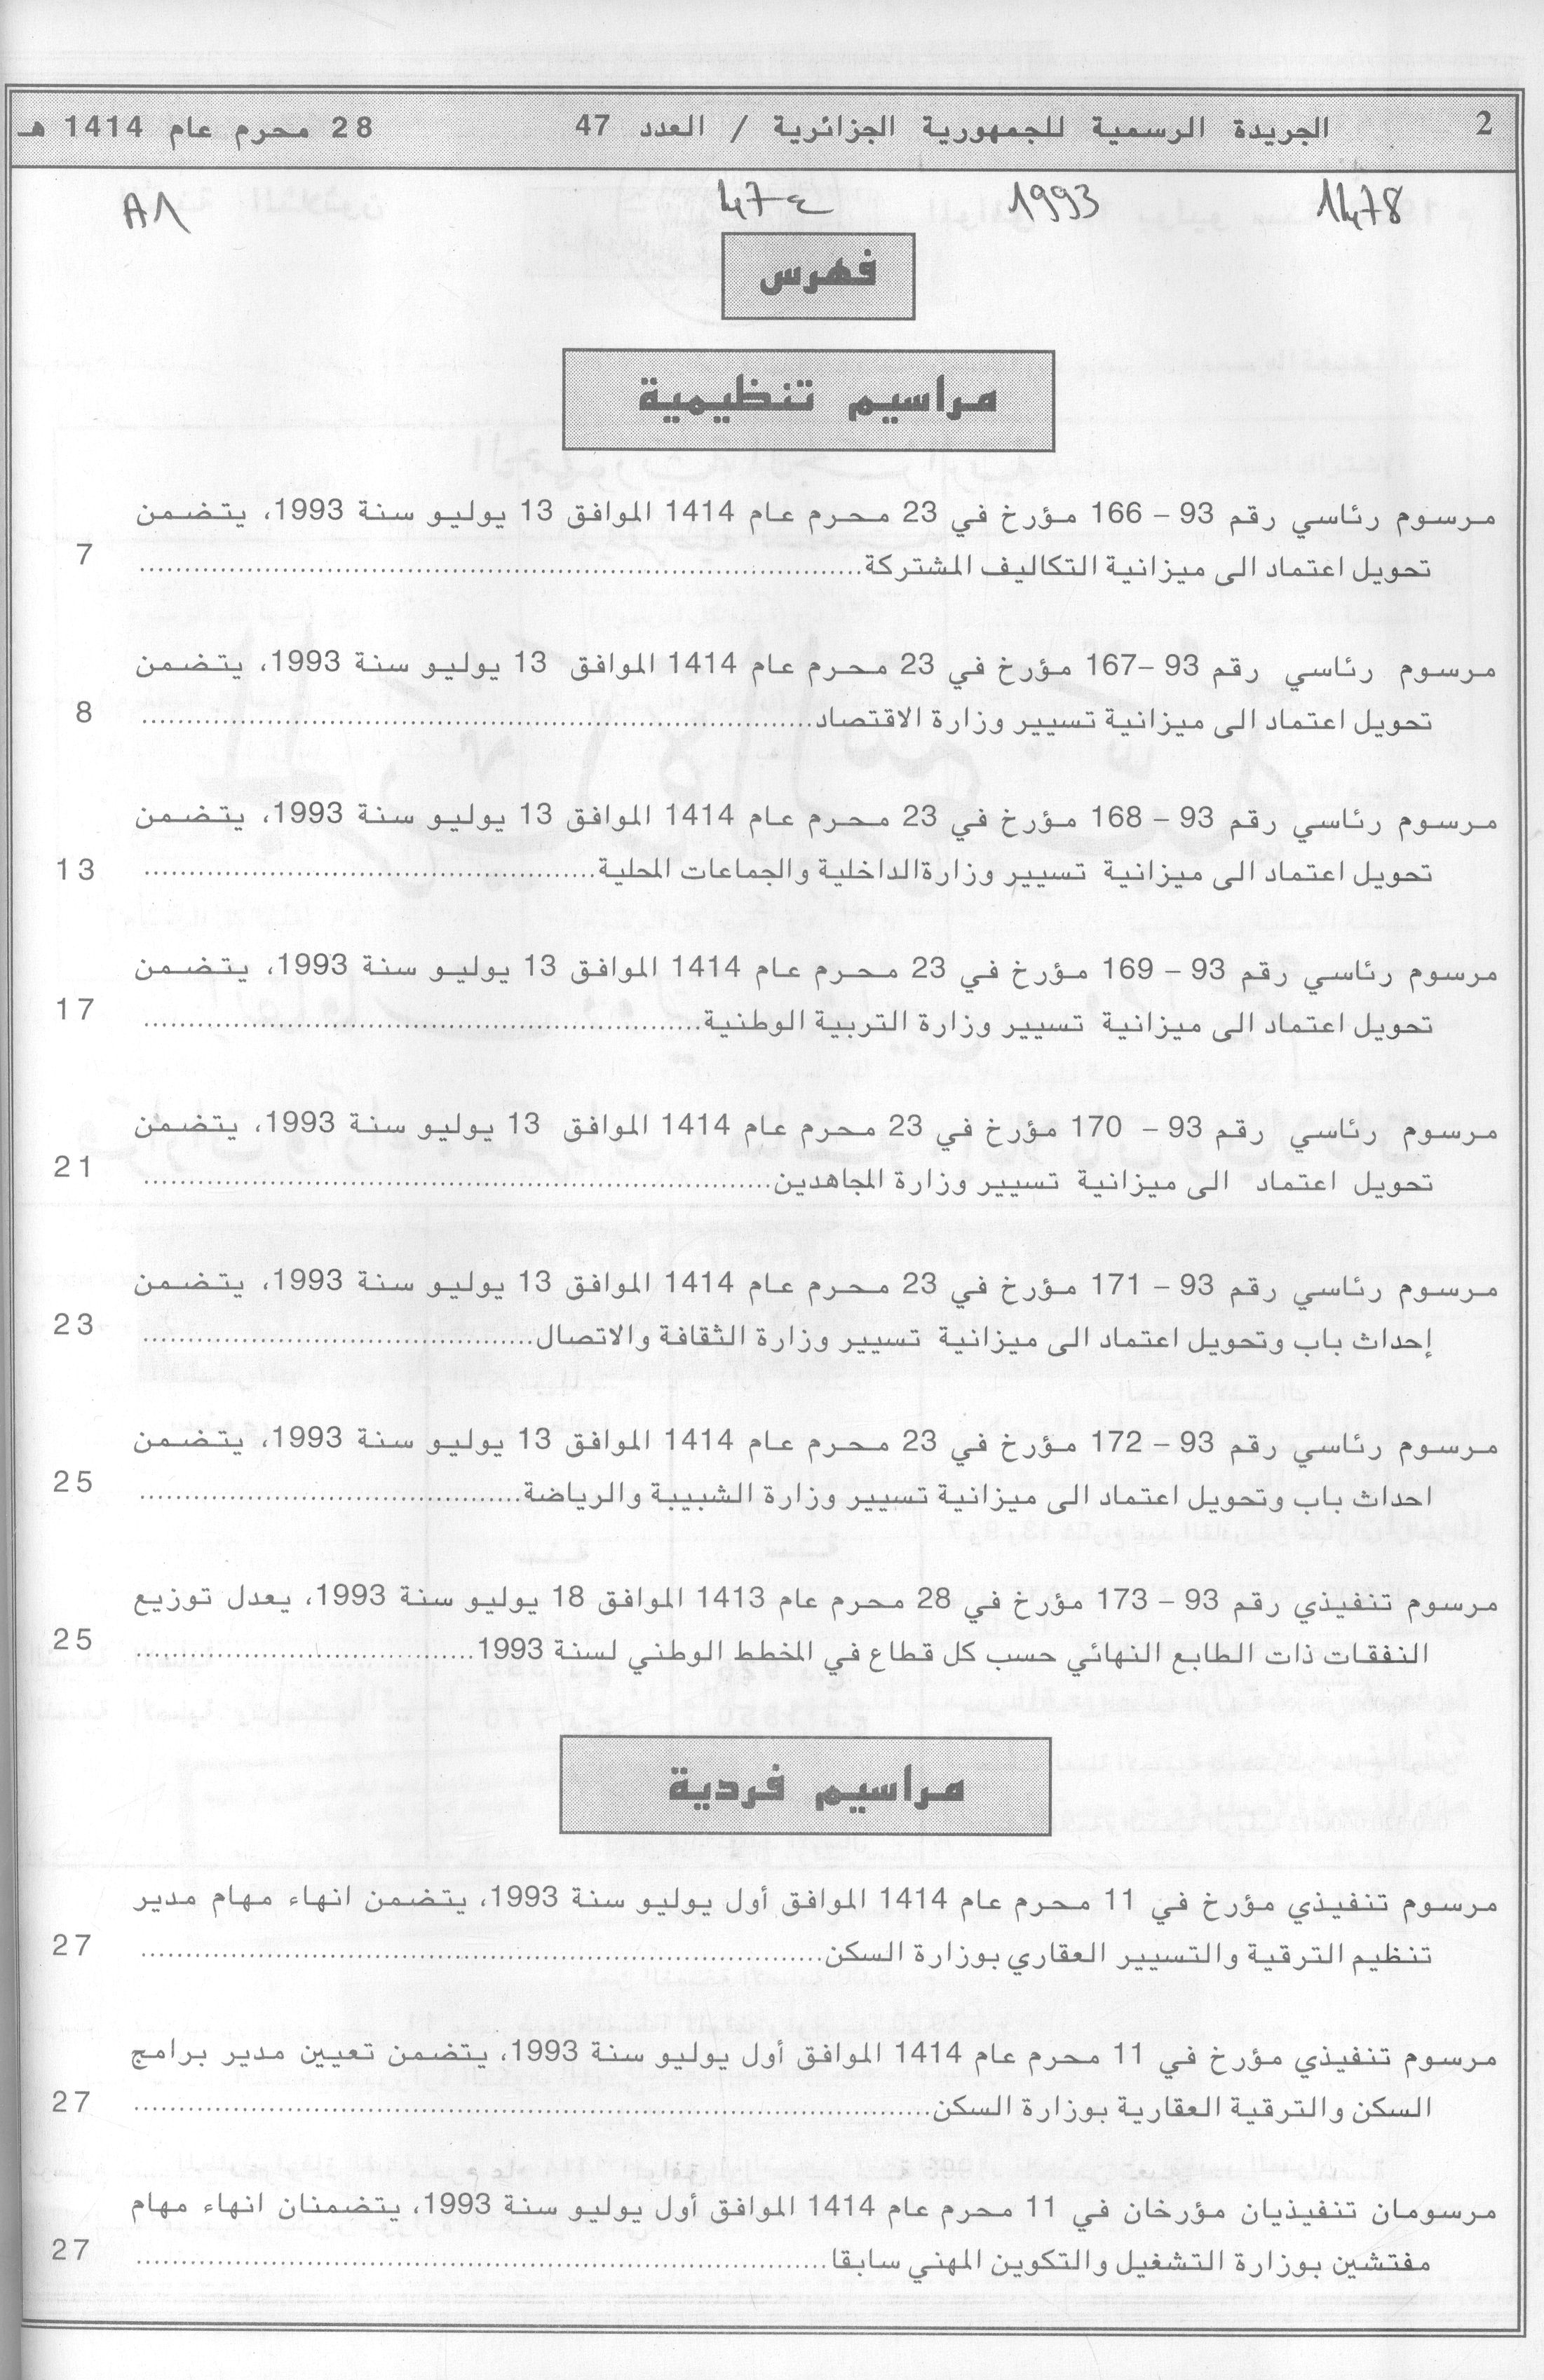 2 الجريدة الرسمية للجمهورية الجزائرية / العدد 47 28 محرم عام 1414 هـ
1478 1993 47 ع A1
فهرس
مراسيم تنظيمية
مرسوم رئاسي رقم 93 – 166 مؤرخ في 23 محرم عام 1414 الموافق 13 يوليو سنة 1993، يتضمن
تحويل اعتماد الى ميزانية التكاليف المشتركة........................ 7
مرسوم رئاسي رقم 93 –167 مؤرخ في 23 محرم عام 1414 الموافق 13 يوليو سنة 1993، يتضمن
تحويل اعتماد الى ميزانية تسيير وزارة الاقتصاد........................ 8
مرسوم رئاسي رقم 93 – 168 مؤرخ في 23 محرم عام 1414 الموافق 13 يوليو سنة 1993، يتضمن
تحويل اعتماد الى ميزانية تسيير وزارةالداخلية والجماعات المحلية........................ 13
مرسوم رئاسي رقم 93 – 169 مؤرخ في 23 محرم عام 1414 الموافق 13 يوليو سنة 1993، يتضمن
تحويل اعتماد الى ميزانية تسيير وزارة التربية الوطنية........................ 17
مرسوم رئاسي رقم 93 – 170 مؤرخ في 23 محرم عام 1414 الموافق 13 يوليو سنة 1993، يتضمن
تحويل اعتماد الى ميزانية تسيير وزارة المجاهدين........................ 21
مرسوم رئاسي رقم 93 – 171 مؤرخ في 23 محرم عام 1414 الموافق 13 يوليو سنة 1993، يتضمن
إحداث باب وتحويل اعتماد الى ميزانية تسيير وزارة الثقافة والاتصال........................ 23
مرسوم رئاسي رقم 93 – 172 مؤرخ في 23 محرم عام 1414 الموافق 13 يوليو سنة 1993، يتضمن
احداث باب وتحويل اعتماد الى ميزانية تسيير وزارة الشبيبة والرياضة........................ 25
مرسوم تنفيذي رقم 93 – 173 مؤرخ في 28 محرم عام 1413 الموافق 18 يوليو سنة 1993، يعدل توزيع
النفقات ذات الطابع النهائي حسب كل قطاع في المخطط الوطني لسنة 1993........................ 25
مراسيم فردية
مرسوم تنفيذي مؤرخ في 11 محرم عام 1414 الموافق أول يوليو سنة 1993، يتضمن انهاء مهام مدير
تنظيم الترقية والتسيير العقاري بوزارة السكن........................ 27
مرسوم تنفيذي مؤرخ في 11 محرم عام 1414 الموافق أول يوليو سنة 1993، يتضمن تعيين مدير برامج
السكن والترقية العقارية بوزارة السكن........................ 27
مرسومان تنفيذيان مؤرخان في 11 محرم عام 1414 الموافق أول يوليو سنة 1993، يتضمنان انهاء مهام
مفتشين بوزارة التشغيل والتكوين المهني سابقا........................ 27